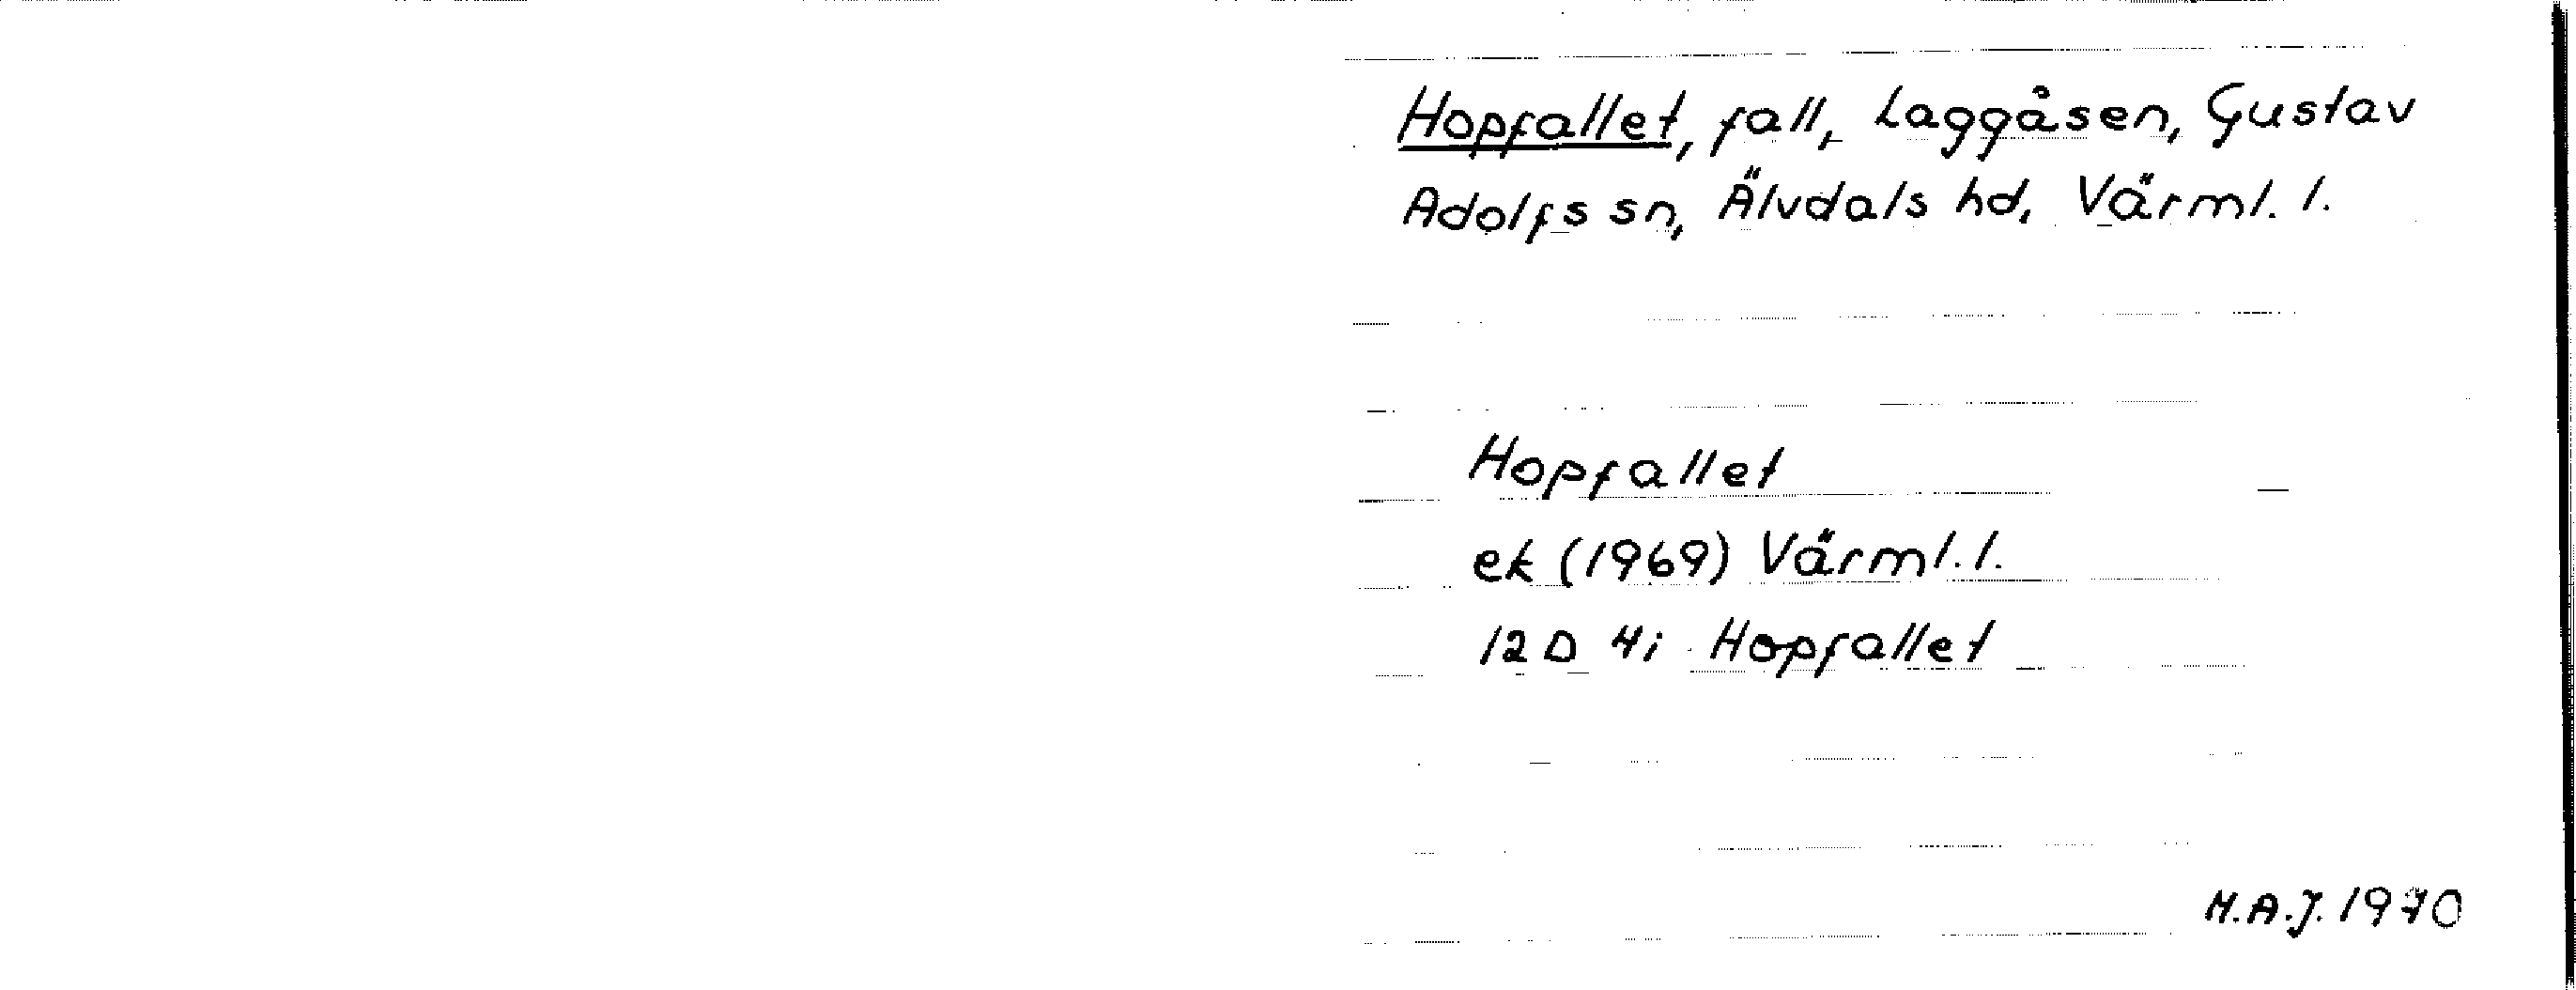 Hopfallet, fall, Laggåsen, Gustav
Adolfs sn, Älvdals hd, Värml. l.
Hopfallet
ek (1969) Värml. l.
12 D 4i Hopfallet
M.A.J. 1970